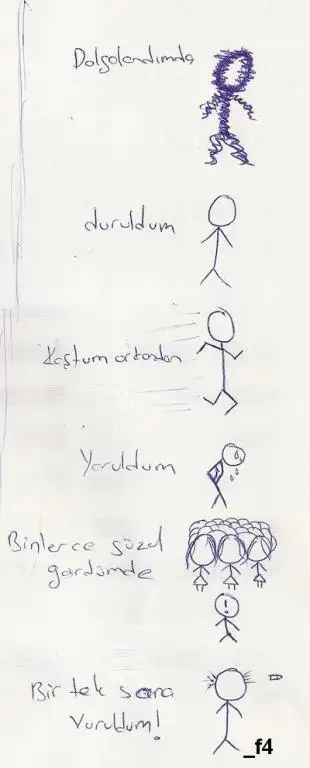 Dalgalandımda
duruldum
Koştum ardından
Yoruldum
Binlerce güzel
gördümde
Bir tek sana
Vuruldum!
_f4